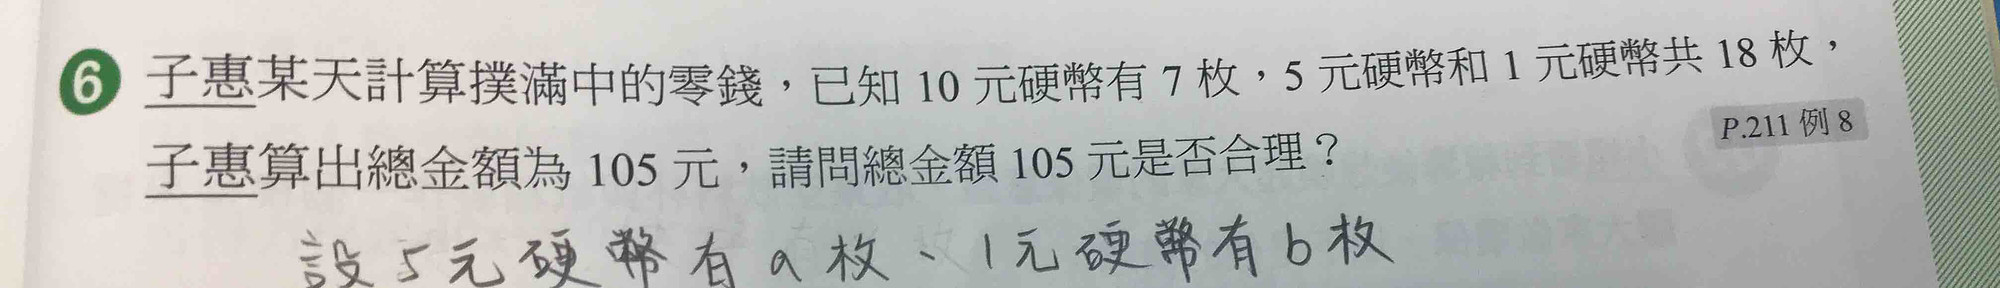 6 子惠某天計算撲滿中的零錢，已知 10 元硬幣有 7 枚，5 元硬幣和 1 元硬幣共 18 枚，
子惠算出總金額為 105 元，請問總金額 105 元是否合理？
P.211 例 8
設 5 元硬幣有 a 枚、1 元硬幣有 b 枚